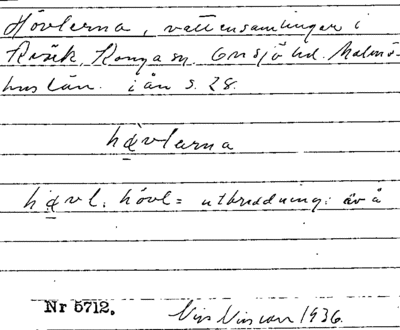 Hövlerna, vattensamlingar i
Risik, Konga sn. Onsjö hd. Malmö-
hus län. i ån s. 28.
hævlerna
hævl: hövl = utbredning: av å
Nr 5712.
Nils Nilsson 1936.